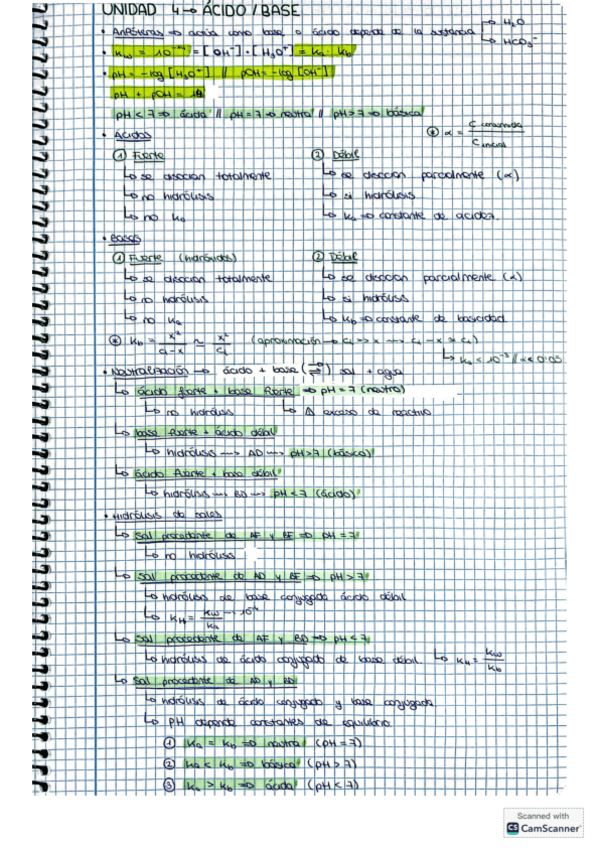 UNIDAD 4 → ÁCIDO / BASE
• Anfóteros ⇒ actúa como base o ácido depende de la sustancia → H₂O
→ HCO₃⁻
• Kw = 10⁻¹⁴ = [OH⁻]·[H₃O⁺] = Ka · Kb
• pH = -log [H₃O⁺] // pOH = -log [OH⁻]
pH + pOH = 14
pH < 7 ⇒ ácida // pH = 7 ⇒ neutra // pH > 7 ⇒ básica
• Ácidos
⊛ α = C consumida / C inicial
① Fuerte ② Débil
↳ se disocian totalmente ↳ se disocian parcialmente (α)
↳ no hidrólisis ↳ si hidrólisis
↳ no Ka ↳ Ka ⇒ constante de acidez
• Bases
① Fuerte (hidróxidos) ② Débil
↳ se disocian totalmente ↳ se disocian parcialmente (α)
↳ no hidrólisis ↳ si hidrólisis
↳ no Ka ↳ Kb ⇒ constante de basicidad
⊛ Kb = x² / Ci - x ≃ x² / Ci (aproximación → Ci >> x → Ci - x ≈ Ci)
• Neutralización → ácido + base (⇌) sal + agua
↳ ácido fuerte + base fuerte ⇒ pH = 7 (neutro)
↳ no hidrólisis ↳ Δ exceso de reactivo
↳ base fuerte + ácido débil
↳ hidrólisis → AD → pH > 7 (básica)
↳ ácido fuerte + base débil
↳ hidrólisis → BD → pH < 7 (ácido)
• Hidrólisis de sales
↳ Sal procedente de AF y BF ⇒ pH = 7
↳ no hidrólisis
↳ Sal procedente de AD y BF ⇒ pH > 7
↳ hidrólisis de base conjugada ácido débil
↳ KH = Kw / Ka → 10⁻¹⁴
↳ Sal procedente de AF y BD ⇒ pH < 7
↳ hidrólisis de ácido conjugado de base débil ↳ KH = Kw / Kb
↳ Sal procedente de AD y BD
↳ hidrólisis de ácido conjugado y base conjugada
↳ PH depende constantes de equilibrio
① Ka = Kb ⇒ neutra (pH = 7)
② Ka < Kb ⇒ básica (pH > 7)
③ Ka > Kb ⇒ ácida (pH < 7)
Scanned with
CS CamScanner